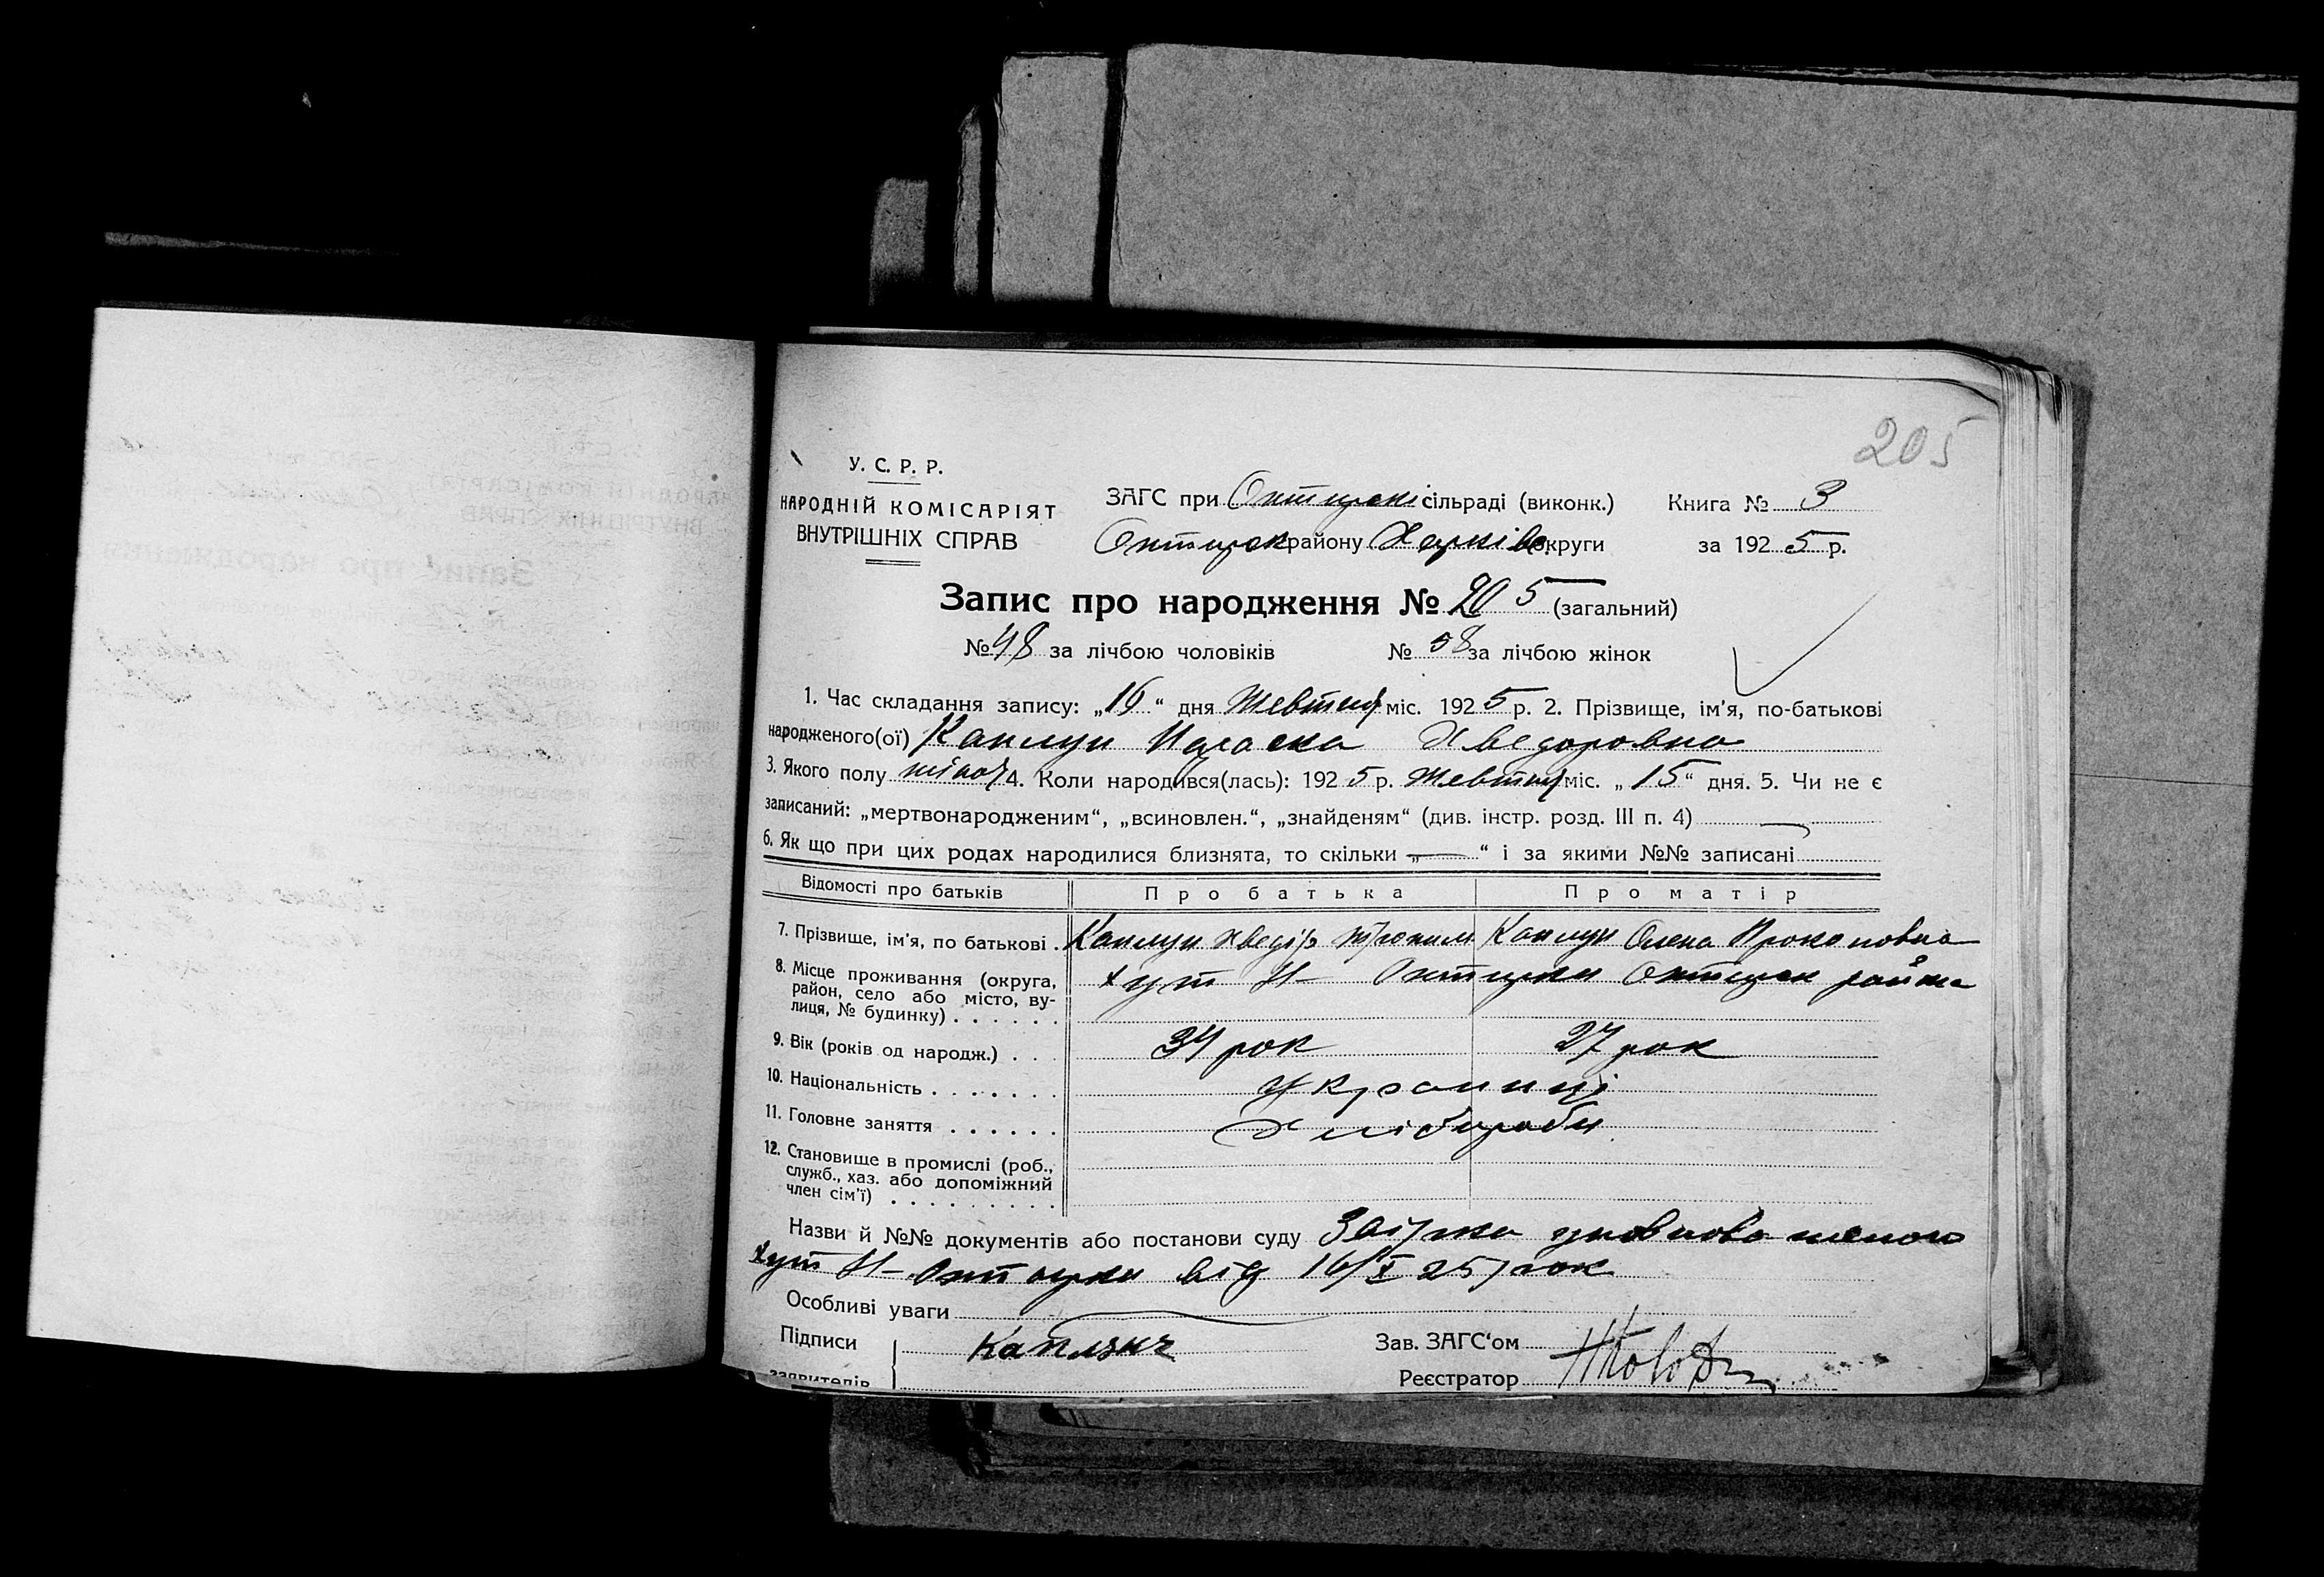 205
У. С. Р. Р.
НАРОДНІЙ КОМІСАРІЯТ
ВНУТРІШНІХ СПРАВ
ЗАГС при Охтирскі сільраді (виконк.) Книга № 3
Охтирск району Харківс округи за 1925 р.
Запис про народження № 205 (загальний)
№ 48 за лічбою чоловіків № 58 за лічбою жінок
1. Час складання запису: „16“ дня Жевтня міс. 1925 р. 2. Прізвище, ім'я, по-батькові
народженого(ої) Каплун Параска Хведоровна
3. Якого полу жіноч 4. Коли народився(лась): 1925 р. Жевтня міс. „15“ дня. 5. Чи не є
записаний: „мертвонародженим“, „всиновлен.“, „знайденям“ (див. інстр. розд. III п. 4)
6. Як що при цих родах народилися близнята, то скільки „—“ і за якими №№ записані
Відомості про батьків Про батька Про матір
7. Прізвище, ім'я, по батькові . Каплун Хведір Трохим Каплун Олена Прокоповна
8. Місце проживання (округа, хут Н- Охтирки Охтирск району
район, село або місто, ву-
лиця, № будинку) . . . . . .
9. Вік (років од народж.) . . . 34 рок 27 рок
10. Національність . . . . . . . Украинці
11. Головне заняття . . . . . . Хлібороби
12. Становище в промислі (роб.,
служб., хаз. або допоміжний
член сім'ї) . . . . . . . . .
Назви й №№ документів або постанови суду Звірка уповнова
хут Н- Охтирки від 16/X 25 рок
Особливі уваги
Підписи Каплунъ Зав. ЗАГС'ом
заявителів Реєстратор